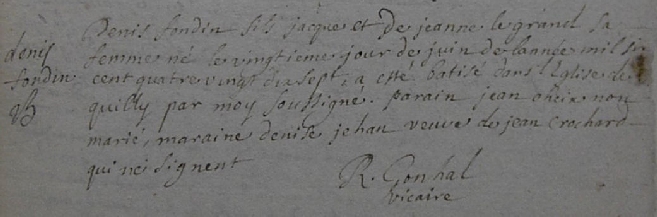 denis
fondin
Denis fondin fils jacque et de jeanne le grand sa
femme né le vingtieme jour de juin de lannee mil six
cent quatre vingt dix sept, a esté batisé dans l'Eglise de
quilly par moy soussigné. parain jean non
marié, maraine denise jehan veuve de jean Crochard
qui ne signent
R. Gonhal
vicaire